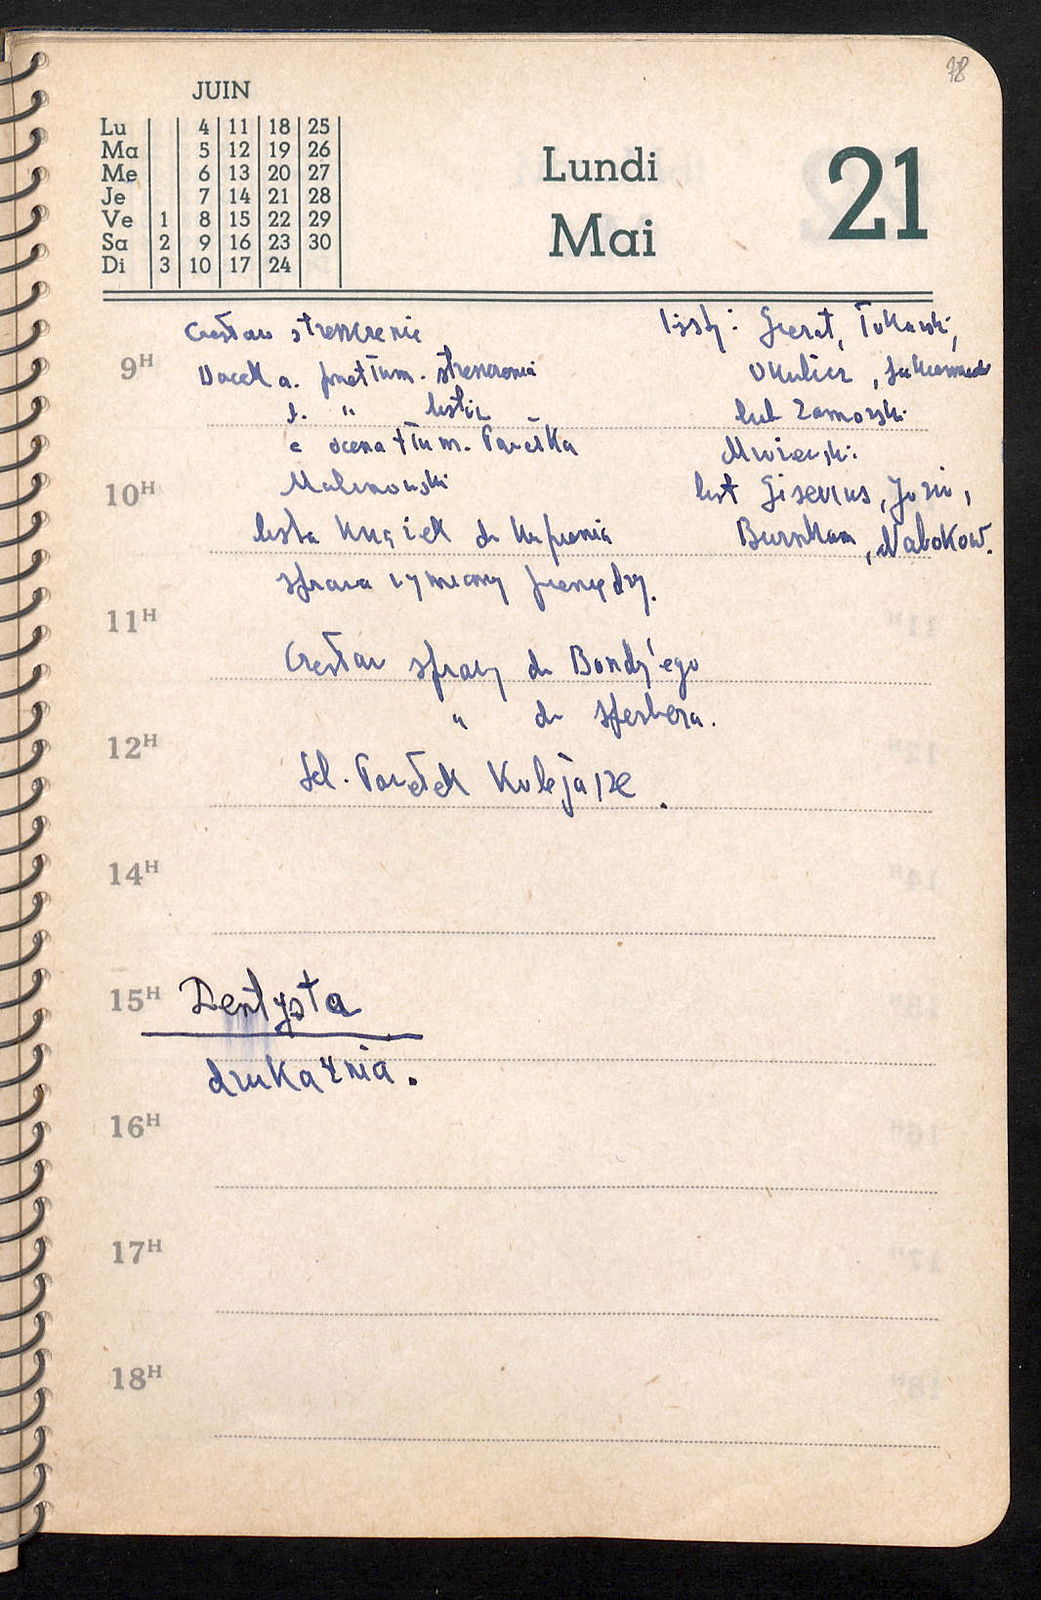 78
JUIN
Lu 4 11 18 25
Ma 5 12 19 26
Me 6 13 20 27
Je 7 14 21 28
Ve 1 8 15 22 29
Sa 2 9 16 23 30
Di 3 10 17 24
Lundi
Mai
21
Czesław streszczenie
9H
Wacek a. tłum. streszczenia
b. " listu
c ocena tłum. Pawełka
Malinowski
10H
lista książek do kupienia
sprawa wymiany pieniędzy.
listy: Gierat, Tokarski,
Okulicz,
lub Zamorski
Mrożewski
list Gisevius, Józio,
Burnham, Nabokow.
11H
Czesław sprawy do Bondy'ego
" do Sperbera.
12H
tel. Pawełek Koleja, że
14H
15H Dentysta
drukarnia.
16H
17H
18H